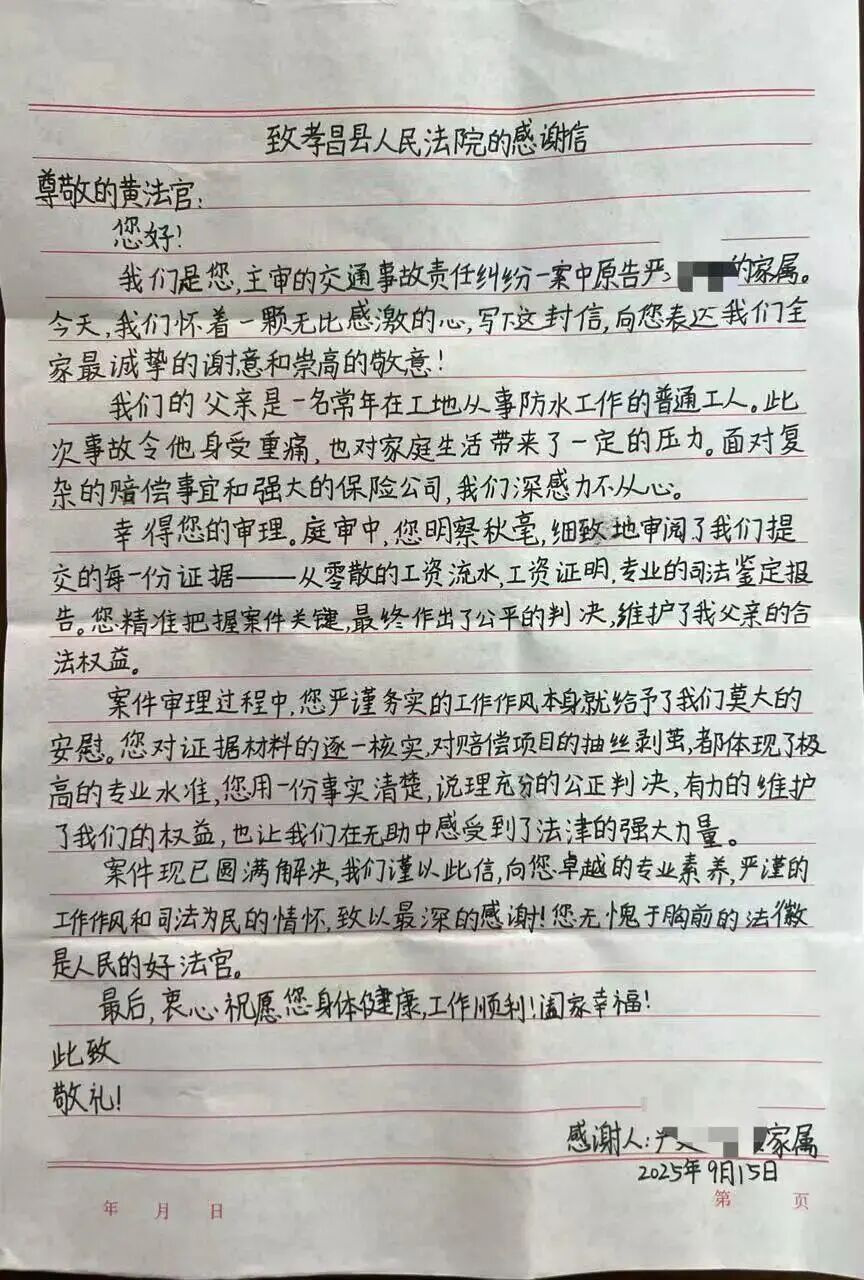 致孝昌县人民法院的感谢信
尊敬的黄法官:
您好!
我们是您,主审的交通事故责任纠纷一案中原告严 的家属。
今天,我们怀着一颗无比感激的心,写下这封信,向您表达我们全
家最诚挚的谢意和崇高的敬意!
我们的父亲是一名常年在工地从事防水工作的普通工人。此
次事故令他身受重痛,也对家庭生活带来了一定的压力。面对复
杂的赔偿事宜和强大的保险公司,我们深感力不从心。
幸得您的审理。庭审中,您明察秋毫,细致地审阅了我们提
交的每一份证据——从零散的工资流水,工资证明,专业的司法鉴定报
告。您精准把握案件关键,最终作出了公平的判决,维护了我父亲的合
法权益。
案件审理过程中,您严谨务实的工作作风本身就给予了我们莫大的
安慰。您对证据材料的逐一核实,对赔偿项目的抽丝剥茧,都体现了极
高的专业水准,您用一份事实清楚,说理充分的公正判决,有力的维护
了我们的权益,也让我们在无助中感受到了法津的强大力量。
案件现已圆满解决,我们谨以此信,向您卓越的专业素养,严谨的
工作作风和司法为民的情怀,致以最深的感谢!您无愧于胸前的法徽
是人民的好法官。
最后,衷心祝愿您身体健康,工作顺利!阖家幸福!
此致
敬礼!
感谢人: 家属
2025年9月15日
年 月 日 第 页